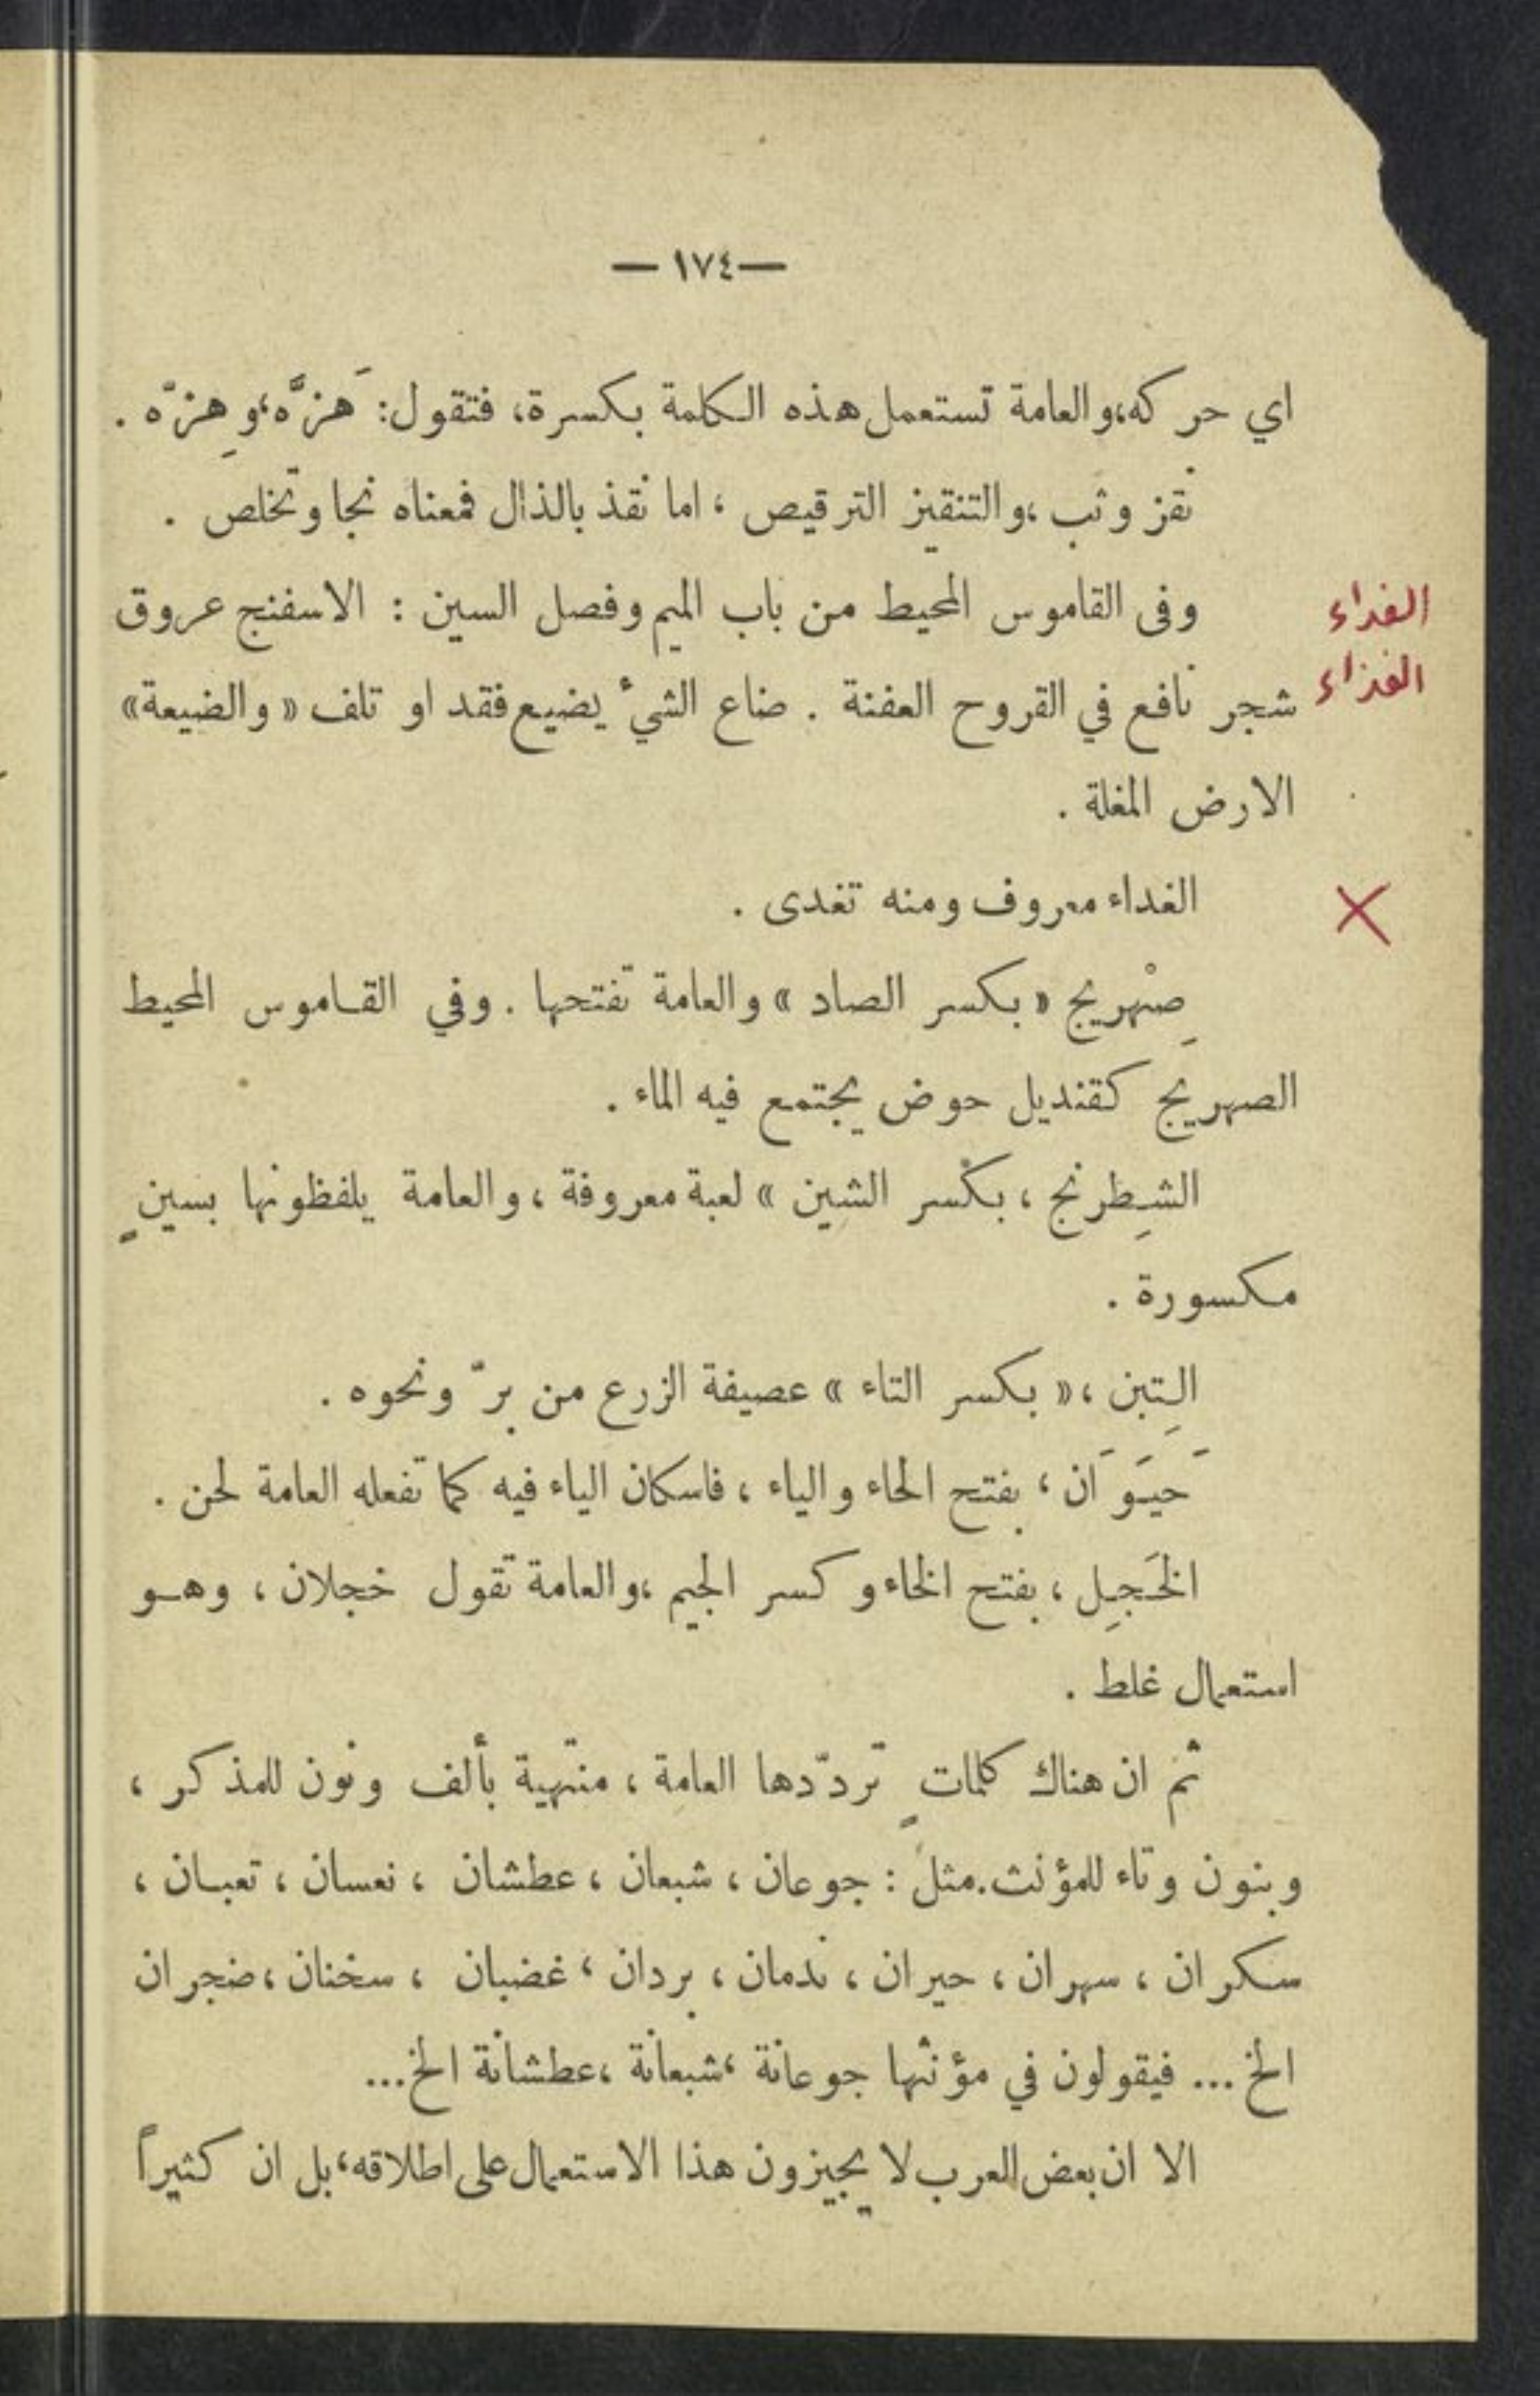 — ١٧٤ —
اي حركه،والعامة تستعمل هذه الكلمة بكسرة، فتقول: هَزَّه،وهِزّه .
نقز وثب ،والتنقيز الترقيص ، اما نقذ بالذال فمعناه نجا وتخلص .
وفى القاموس المحيط من باب الميم وفصل السين : الاسفنج عروق
الغداء
الغذاء
شجر نافع في القروح العفنة . ضاع الشيُ يضيع فقد او تلف « والضيعة»
الارض المغلة .
الغداء معروف ومنه تغدى .
×
صِنْهريج « بكسر الصاد » والعامة تفتحها . وفي القاموس المحيط
الصهريج كقنديل حوض يجتمع فيه الماء .
الشِطرنج ، بكسر الشين » لعبة معروفة ، والعامة يلفظونها بسينٍ
مكسورة .
التِبن ،« بكسر التاء » عصيفة الزرع من برّ ونحوه .
حَيَوَان ، بفتح الحاء والياء ، فاسكان الياء فيه كما تفعله العامة لحن .
الخَجِل ، بفتح الخاء وكسر الجيم ،والعامة تقول خجلان ، وهو
استعمال غلط .
ثم ان هناك كلماتٍ تردّدها العامة ، منتهية بألف ونون للمذكر ،
وبنون وتاء للمؤنث.مثل : جوعان ، شبعان ، عطشان ، نعسان ، تعبان ،
سكران ، سهران ، حيران ، ندمان ، بردان ، غضبان ، سخنان ، ضجران
الخ ... فيقولون في مؤنثها جوعانة ،شبعانة ،عطشانة الخ...
الا ان بعض العرب لا يجيزون هذا الاستعمال على اطلاقه، بل ان كثيراً